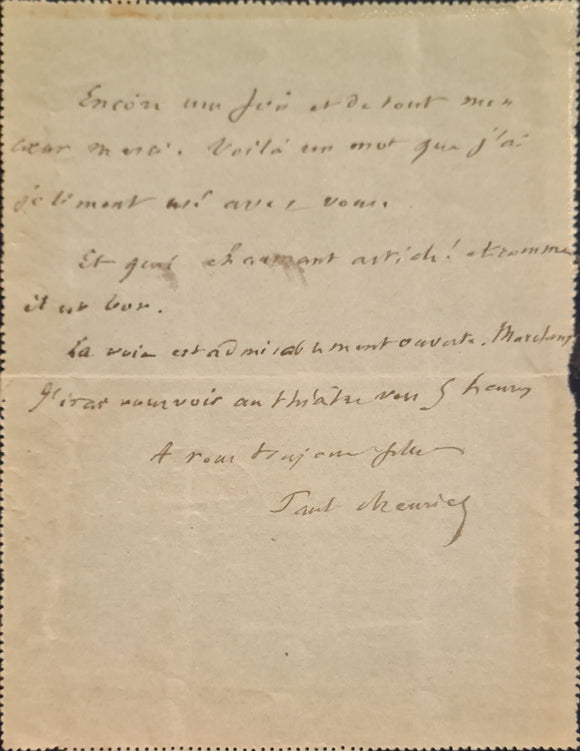 Encore une fois et de tout mon
cœur merci. Voilà un mot que j'ai
usé avec vous.
Et quel charmant article! et comme
il est bon.
La voie est admirablement ouverte. Marchons
J'irai vous voir au théâtre vers 5 heures
A vous toujours plus
Paul Meurice